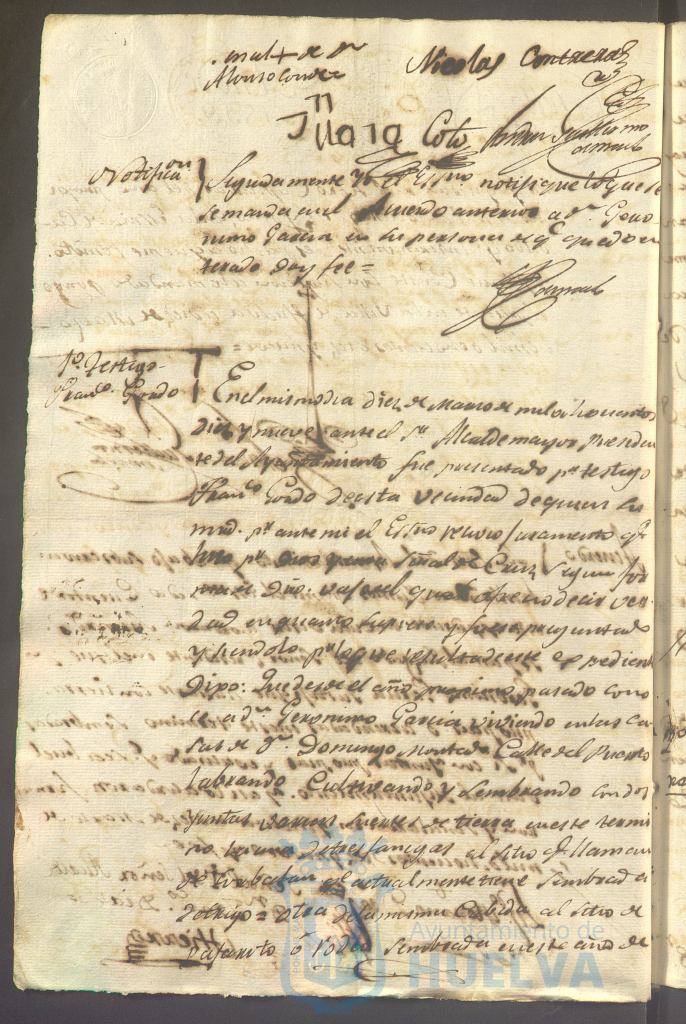 señal + de Dn
Alonso Conde
Nicolas Contreras
Juana Coto
Notificaon } Seguidamente Yo el Essno notifique lo que se
manda en el Acuerdo anterior a dn Gero
nimo Garcia en su persona de qe quedo en
terado doy fee =
1º Testigo
Franco Grado
En el mismo dia diez de Marzo de mil ochocientos
diez y nueve ante el Sr Alcalde mayor Presiden
te del Ayuntamiento fue presentado pr testigo
Franco Grado de esta vecindad de quien su
mrd. pr ante mi el Essno recivio juramento qe
hizo pr Dios y una Señal de Cruz segun for
ma de dro: vajo del qual ofrecio decir ver
dad en quanto supiere y fuere preguntado
y siendolo pr lo que resulta de este expediente
Dixo: Que desde el año proximo pasado cono
ce a dn Geronimo Garcia viviendo en las ca
sas de Dn Domingo Montado Calle del Puerto
labrando Cultivando y Sembrando con dos
yuntas varias suertes de tierra en este termi
no la una de tres fanegas al sitio qe llaman
actualmente tiene Sembrada
de trigo = otra de la misma Cabida al sitio de
Sembrada en este año de
Ayuntamiento de
HUELVA